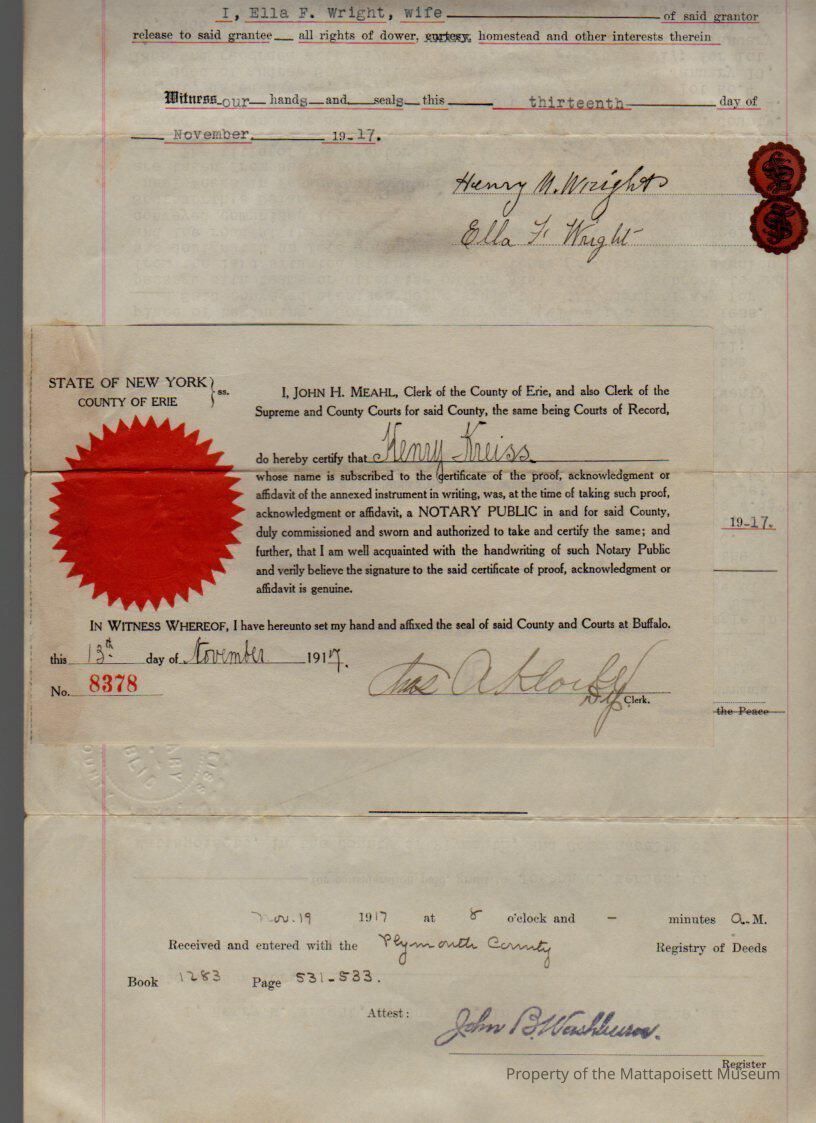 I, Ella F. Wright, wife of said grantor
release to said grantee all rights of dower, curtesy, homestead and other interests therein
Witness our hands and seals this thirteenth day of
November 19 17.
Henry M. Wright
Ella F. Wright
STATE OF NEW YORK
COUNTY OF ERIE
} ss.
I, JOHN H. MEAHL, Clerk of the County of Erie, and also Clerk of the
Supreme and County Courts for said County, the same being Courts of Record,
do hereby certify that Henry Kreiss
whose name is subscribed to the certificate of the proof, acknowledgment or
affidavit of the annexed instrument in writing, was, at the time of taking such proof,
acknowledgment or affidavit, a NOTARY PUBLIC in and for said County,
duly commissioned and sworn and authorized to take and certify the same; and
further, that I am well acquainted with the handwriting of such Notary Public
and verily believe the signature to the said certificate of proof, acknowledgment or
affidavit is genuine.
19-17.
IN WITNESS WHEREOF, I have hereunto set my hand and affixed the seal of said County and Courts at Buffalo.
this 13th day of November 1917.
No. 8378
Dep Clerk.
the Peace
Nov. 19 1917 at 8 o'clock and - minutes A. M.
Received and entered with the Plymouth County Registry of Deeds
Book 1283 Page 531-533.
Attest: John B. Washburn.
Register
Property of the Mattapoisett Museum